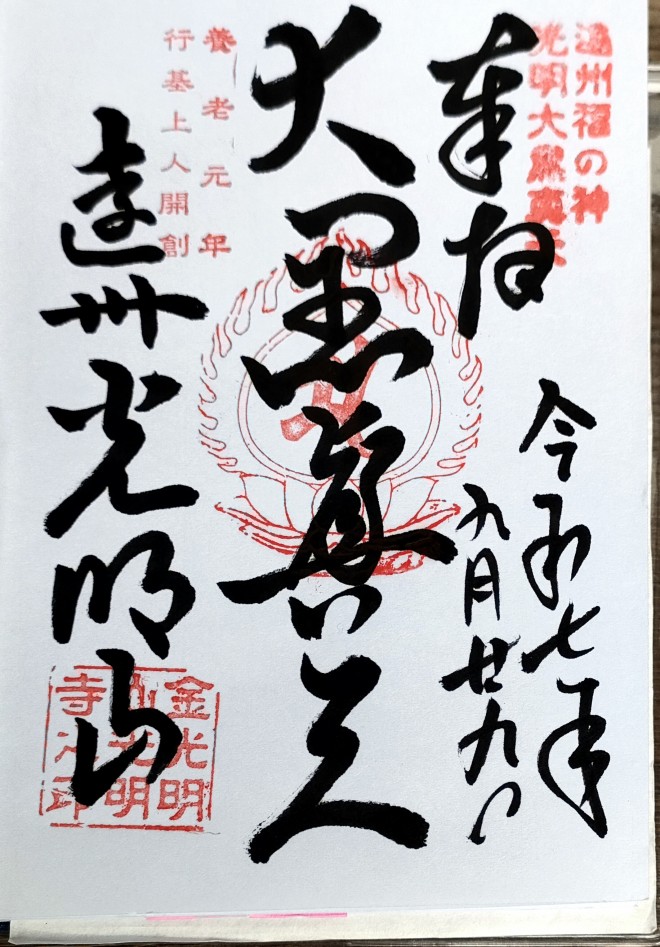 遠州福の神
光明大黒眞天
奉拝
令和七年
九月廿九日
大黒眞天
養老元年
行基上人開創
遠州光明山
金光明
山光明
寺之印